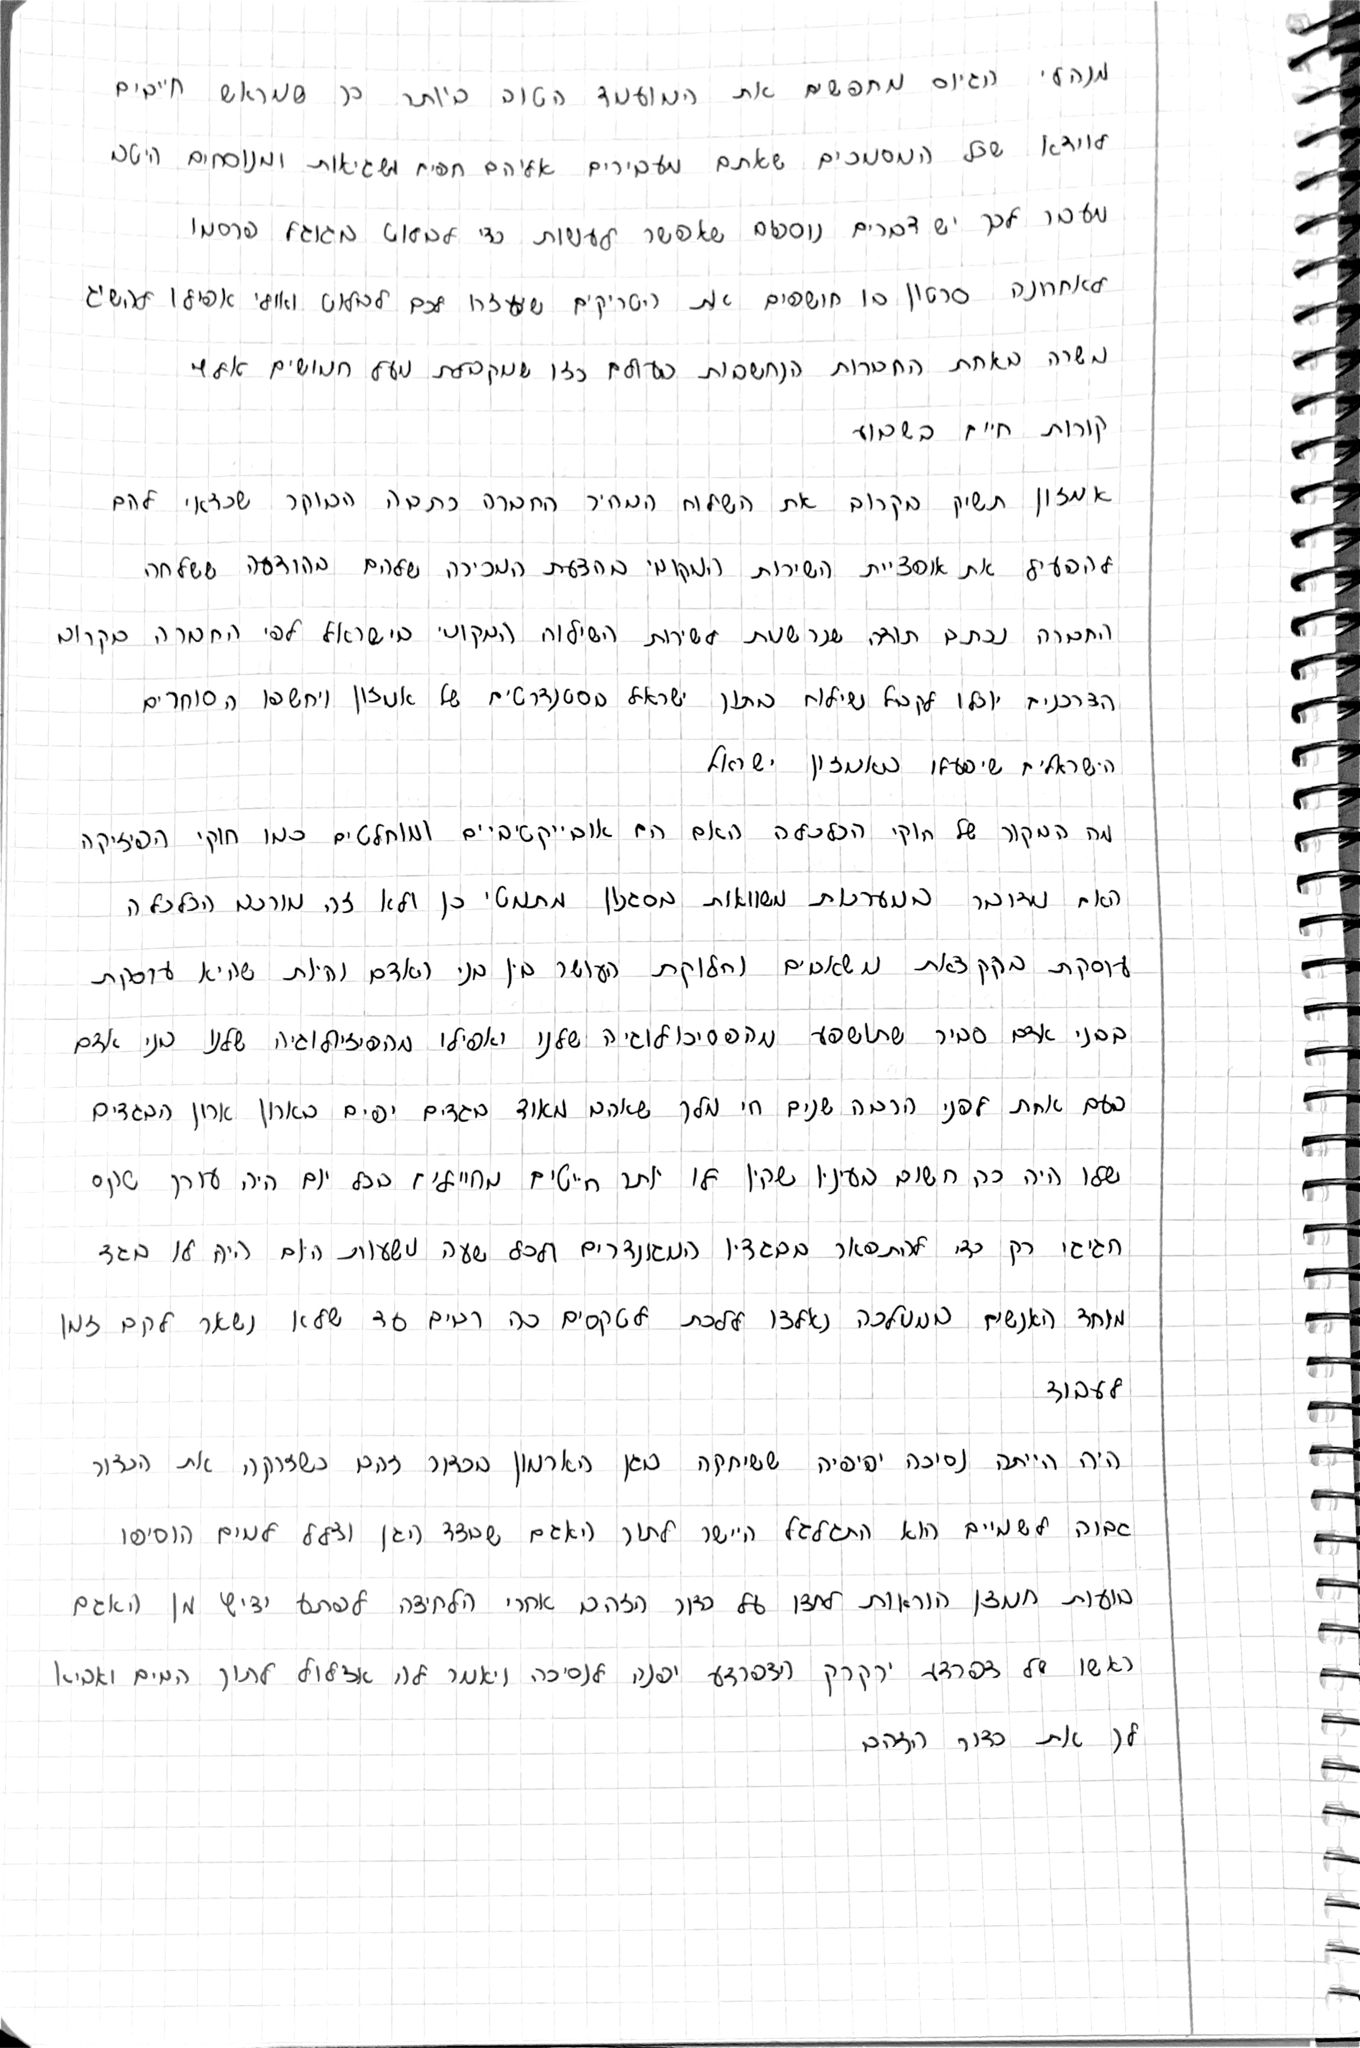 מנהלי הגיוס מחפשים את המועמד הטוב ביותר כך שמראש חייבים
לוודא שכל המסמכים שאתם מעבירים אליהם חפים משגיאות ומנוסחים היטב
מעבר לכך יש דברים נוספים שאפשר לעשות כדי לבלוט בגוגל פרסמו
לאחרונה סרטון בו חושפים את הטריקים שיעזרו לכם לבלוט ואולי אפילו להשיג
משרה באחת החברות הנחשבות בעולם כזו שמקבלת מעל חמישים אלף
קורות חיים בשבוע
אמזון תשיק בקרוב את השילוח המהיר החברה כתבה הבוקר שכדאי להם
להפעיל את אופציית השירות המקומי בהצעת המכירה שלהם בהודעה ששלחה
החברה נכתב תודה שנרשמת לשירות השילוח המקומי בישראל לפי החברה בקרוב
הצרכנים יוכלו לקבל שילוח מתוך ישראל בסטנדרטים של אמזון ויחשפו הסוחרים
הישראלים שיפעלו באמזון ישראל
מה המקור של חוקי הכלכלה האם הם אובייקטיביים ומוחלטים כמו חוקי הפיזיקה
האם מדובר במערכות משוואות בסגנון מתמטי כן ולא זה מורכב הכלכלה
עוסקת בהקצאת משאבים וחלוקת העושר בין בני האדם והיות שהיא עוסקת
בבני אדם סביר שתושפע מהפסיכולוגיה שלנו ואפילו מהפיזיולוגיה שלנו בני אדם
פעם אחת לפני הרבה שנים חי מלך שאהב מאוד בגדים יפים בארון ארון הבגדים
שלו היה כה חשוב בעיניו שהיו לו יותר חייטים מחיילים בכל יום היה עורך טקס
חגיגי רק כדי להתפאר בבגדיו המגונדרים ולכל שעה משעות היום היה לו בגד
מיוחד האנשים בממלכה נאלצו ללכת לטקסים כה רבים עד שלא נשאר להם זמן
לעבוד
היה הייתה נסיכה יפיפיה ששיחקה בגן הארמון בכדור זהב כשזרקה את הכדור
גבוה לשמיים הוא התגלגל היישר לתוך האגם שבצד הגן וצלל למים הוסיפו
בועות חמצן הוראות לחצו על כדור הזהב אחרי הלחיצה לפתע יציץ מן האגם
ראשו של צפרדע ירקרק הצפרדע יפנה לנסיכה ויאמר לה אצלול לתוך המים ואביא
לך את כדור הזהב